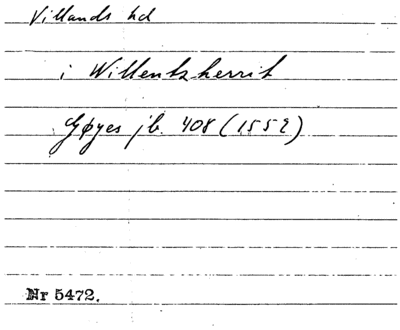 Villands hd
i Willentzherrit
Gøyes jb. 408 (1552)
Nr 5472.